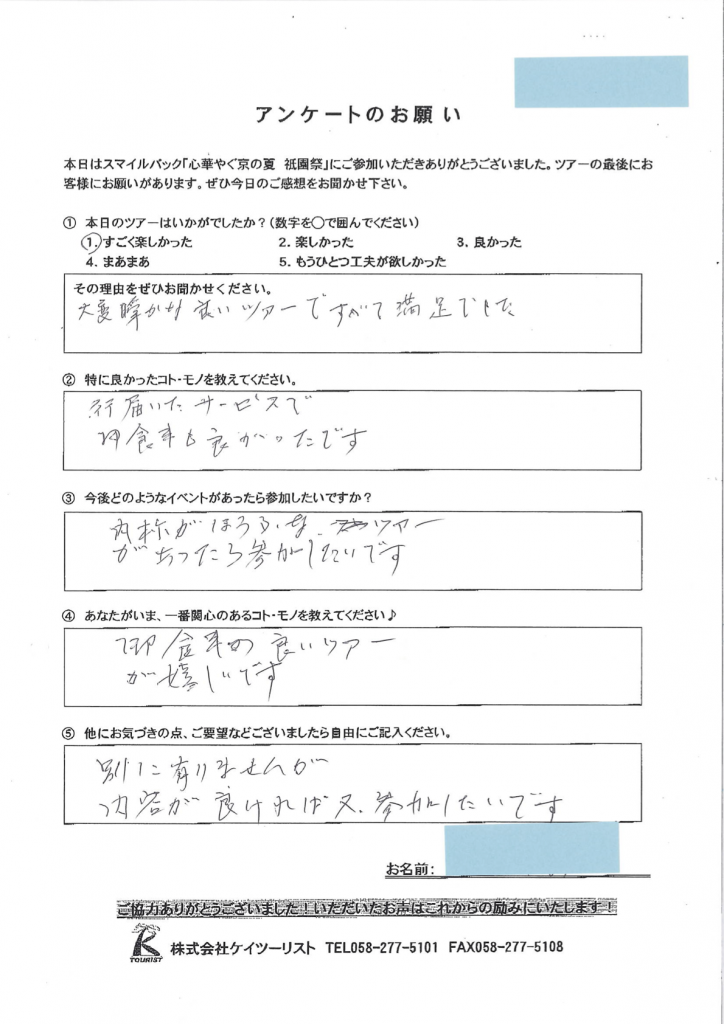 アンケートのお願い
本日はスマイルパック「心華やぐ京の夏　祇園祭」にご参加いただきありがとうございました。ツアーの最後にお
客様にお願いがあります。ぜひ今日のご感想をお聞かせ下さい。
① 本日のツアーはいかがでしたか?(数字を○で囲んでください)
1. すごく楽しかった　2. 楽しかった　3. 良かった
4. まあまあ　5. もうひとつ工夫が欲しかった
その理由をぜひお聞かせください。
大変 良いツアーですべて満足でした
② 特に良かったコト・モノを教えてください。
行届いたサービスで
御食事も良かったです
③ 今後どのようなイベントがあったら参加したいですか?
ツアー
があったら参加したいです
④ あなたがいま、一番関心のあるコト・モノを教えてください♪
御食事の良いツアー
が嬉しいです
⑤ 他にお気づきの点、ご要望などございましたら自由にご記入ください。
別に有りませんが
内容が良ければ又、参加したいです
お名前:
ご協力ありがとうございました!いただいたお声はこれからの励みにいたします!
K TOURIST 株式会社ケイツーリスト TEL058-277-5101 FAX058-277-5108